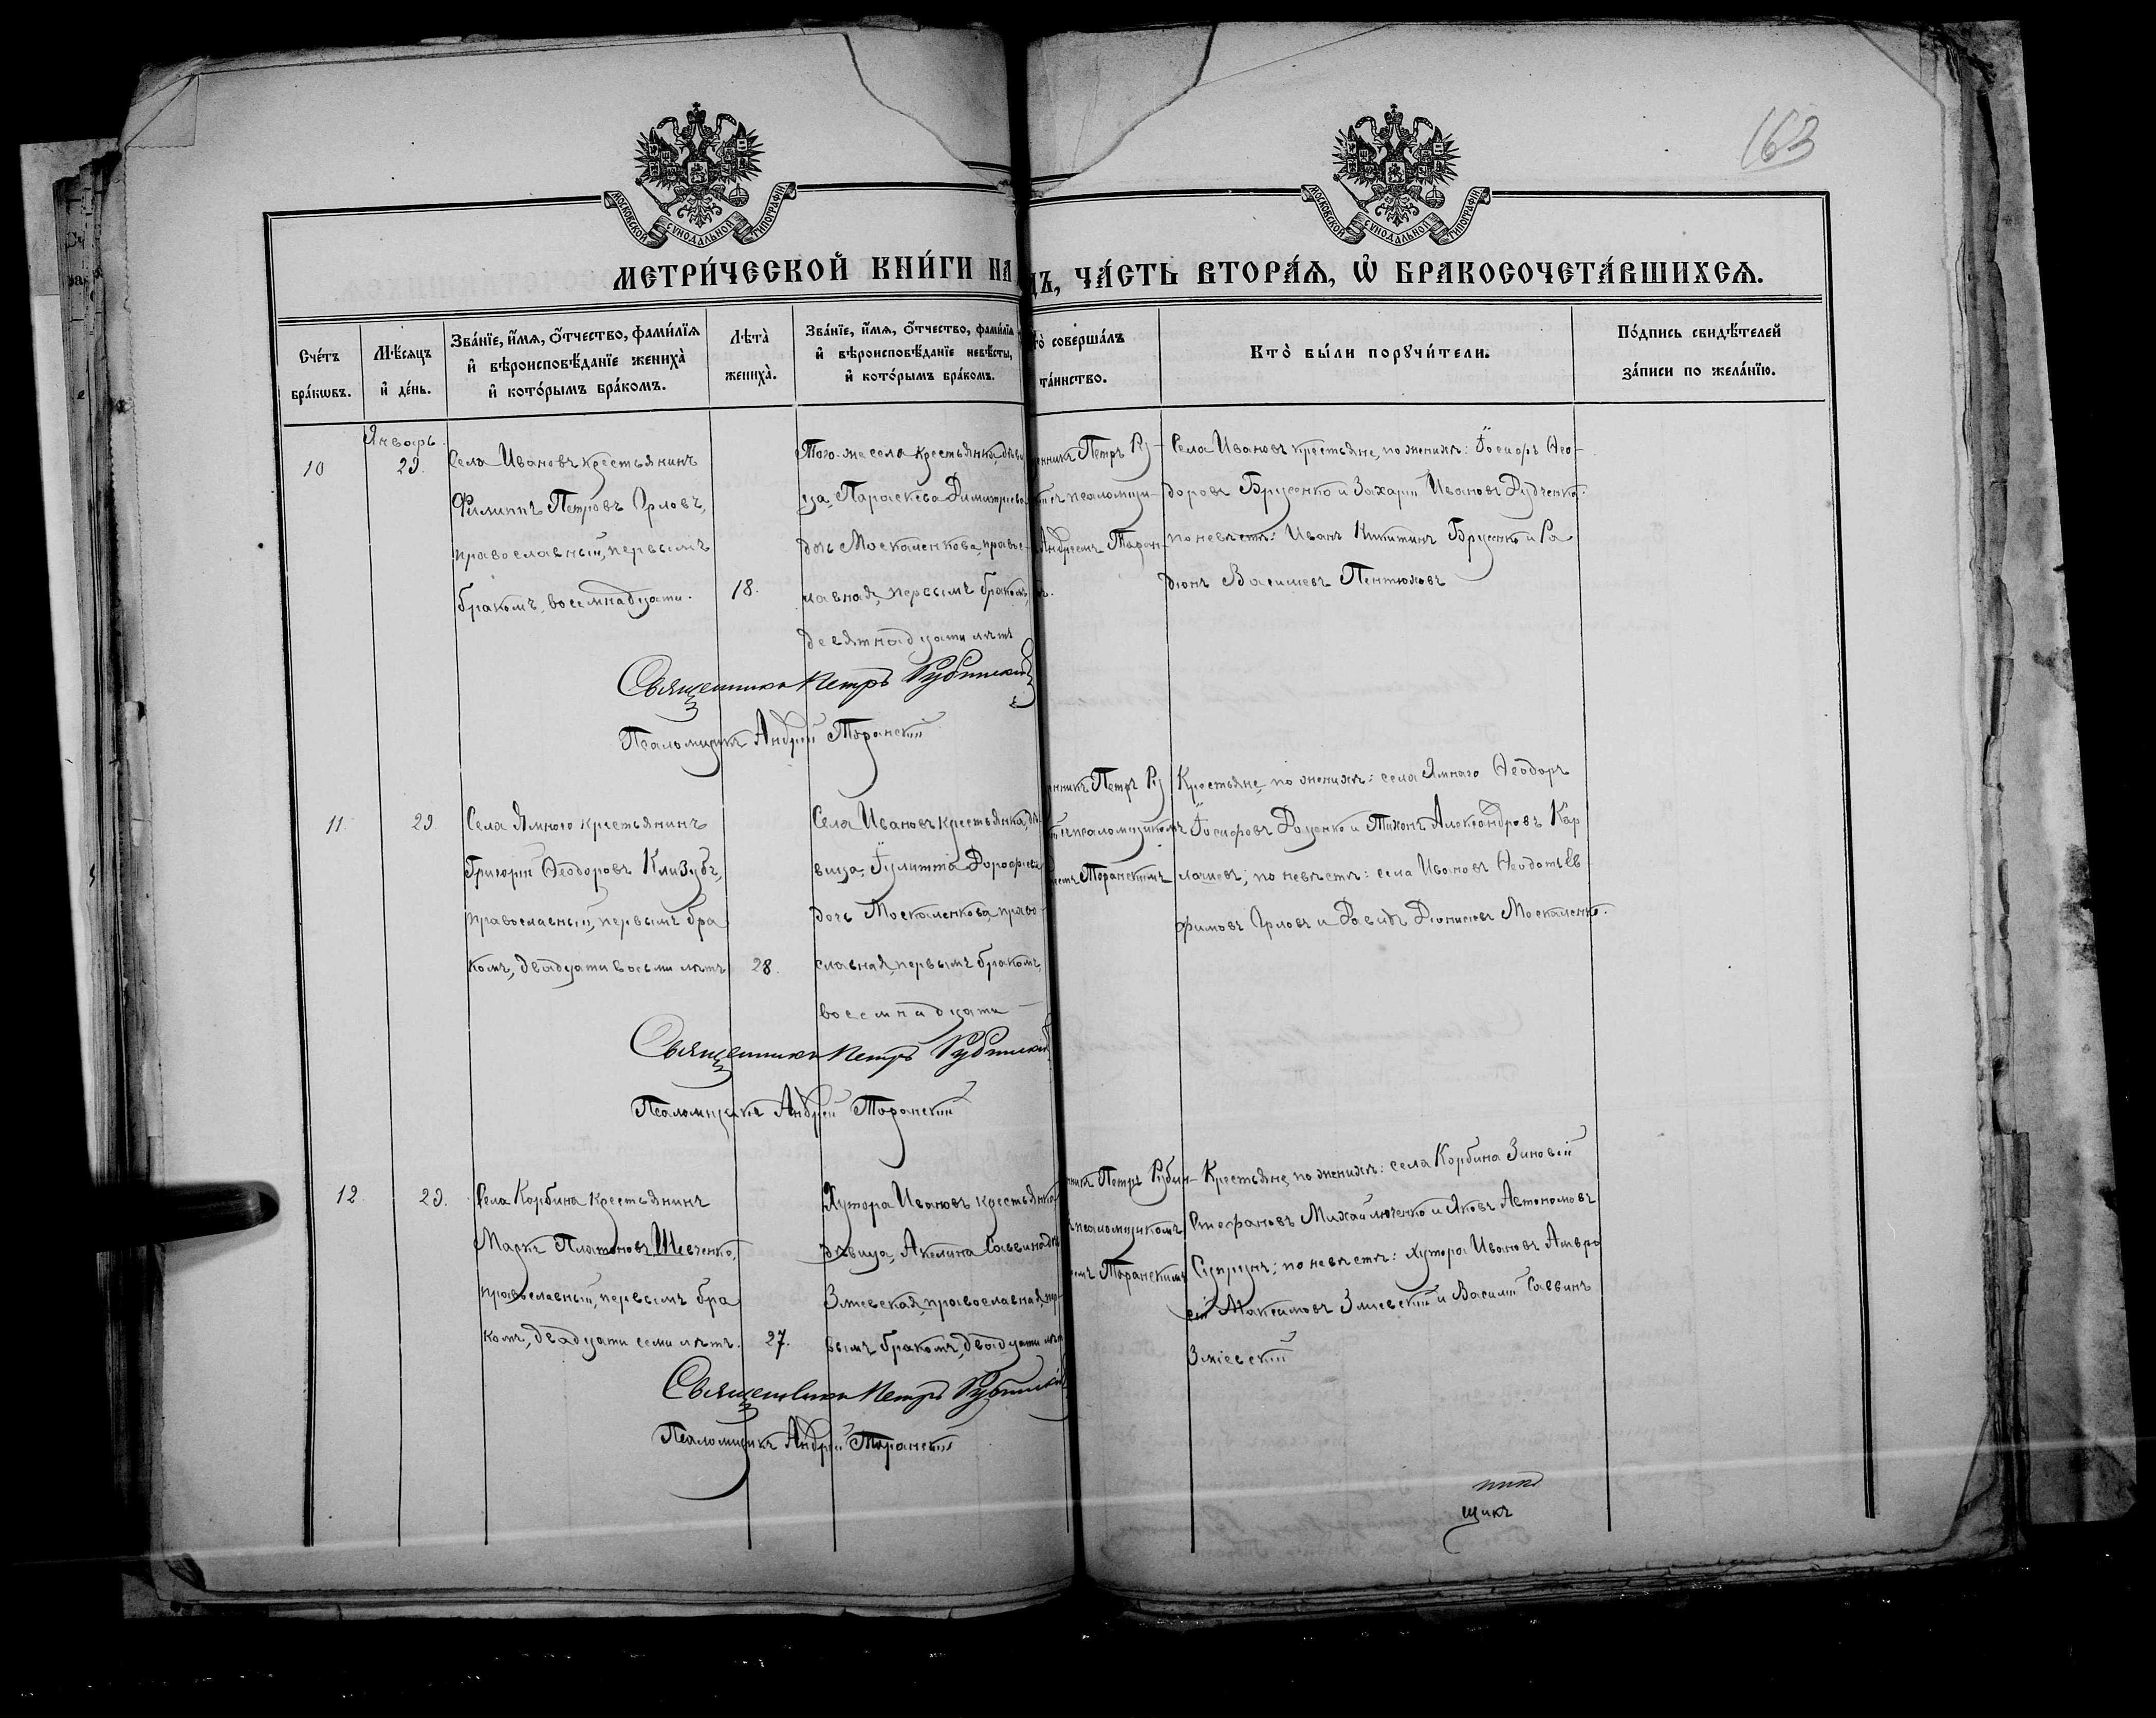 163
МОСКОВСКОЙ СѴНОДАЛЬНОЙ ТИПОГРАФІИ
МОСКОВСКОЙ СѴНОДАЛЬНОЙ ТИПОГРАФІИ
МЕТРИ́ЧЕСКОЙ КНИ́ГИ НА
ДЪ, ЧА́СТЬ ВТОРА́Я, Ѿ БРАКОСОЧЕТА́ВШИХСѦ.
Сче́тъ бра́кѡвъ.
Мѣ́сяцъ и҆ де́нь.
Зва́нїе, и҆́мѧ, ѻ҆́тчество, фами́лїѧ
и҆ вѣроисповѣ́данїе жениха̀
и҆ кото́рымъ бра́комъ.
Лѣта̀ жениха̀.
Зва́нїе, и҆́мѧ, ѻ҆́тчество, фами́лїѧ
и҆ вѣроисповѣ́данїе невѣ́сты,
и҆ кото́рымъ бра́комъ.
то̀ соверша́лъ
та́инство.
Кто̀ бы́ли порꙋчи́тели.
По́дпись свидѣ́телей
за́писи по жела́нїю.
10
Январь
29.
Села Ивановъ крестьянинъ
Филиппъ Петровъ Орловъ,
православный, первымъ
бракомъ, восемнадцати.
18.
Того-же села крестьянка, дѣви
ца, Параскева Димитріева
дочь Москаленкова, правос-
лавная, первымъ бракомъ,
девятнадцати лѣтъ
нникъ Петръ Ру-
псаломщи-
Андреемъ Таран-
Села Ивановъ крестьяне, по женихѣ: Іосифъ Ѳео-
доровъ Брусенко и Захарій Ивановъ Дудченко.
по невѣстѣ: Иванъ Никитинъ Брусенко и Ра
діонъ Василіевъ Пентюховъ
Священникъ Петръ Рубинскій
Псаломщикъ Андрей Таранскій
11
29.
Села Ямного крестьянинъ
Григорій Ѳеодоровъ Клизубъ,
православный, первымъ бра
комъ, двадцати восьми лѣтъ
28.
Села Ивановъ крестьянка, дѣ
вица, Іулитта Дорофеева
дочь Москаленкова, право-
славная, первымъ бракомъ,
восемнадцати
нникъ Петръ Ру
псаломщикомъ
Таранскимъ
Крестьяне, по женихѣ: села Ямнаго Ѳеодоръ
Іосифовъ Доценко и Тихонъ Александровъ Кар
лачиевъ; по невѣстѣ: села Ивановъ Ѳеодотъ Ев
фимовъ Орловъ и Давидъ Діонисіевъ Москаленко.
Священникъ Петръ Рубинскій
Псаломщикъ Андрей Таранскій
12
29.
Села Корбина крестьянинъ
Маркъ Платоновъ Шевченко,
православный, первымъ бра
комъ, двадцати семи лѣтъ.
27.
Хутора Ивановъ крестьянка
дѣвица, Акелина Саввина дочь
Зміевская, православная, пер-
вымъ бракомъ, двадцати лѣтъ
нникъ Петръ Рубин-
псаломщикомъ
Таранскимъ
Крестьяне, по женихѣ: села Корбина Зиновій
Стефановъ Михайлюченко и Яковъ Автономовъ
Супрунъ; по невѣстѣ: хутора Ивановъ Амвро
сій Максимовъ Зміевскій и Василій Саввинъ
Зміевскій
Священникъ Петръ Рубинскій
Псаломщикъ Андрей Таранскій
щикъ